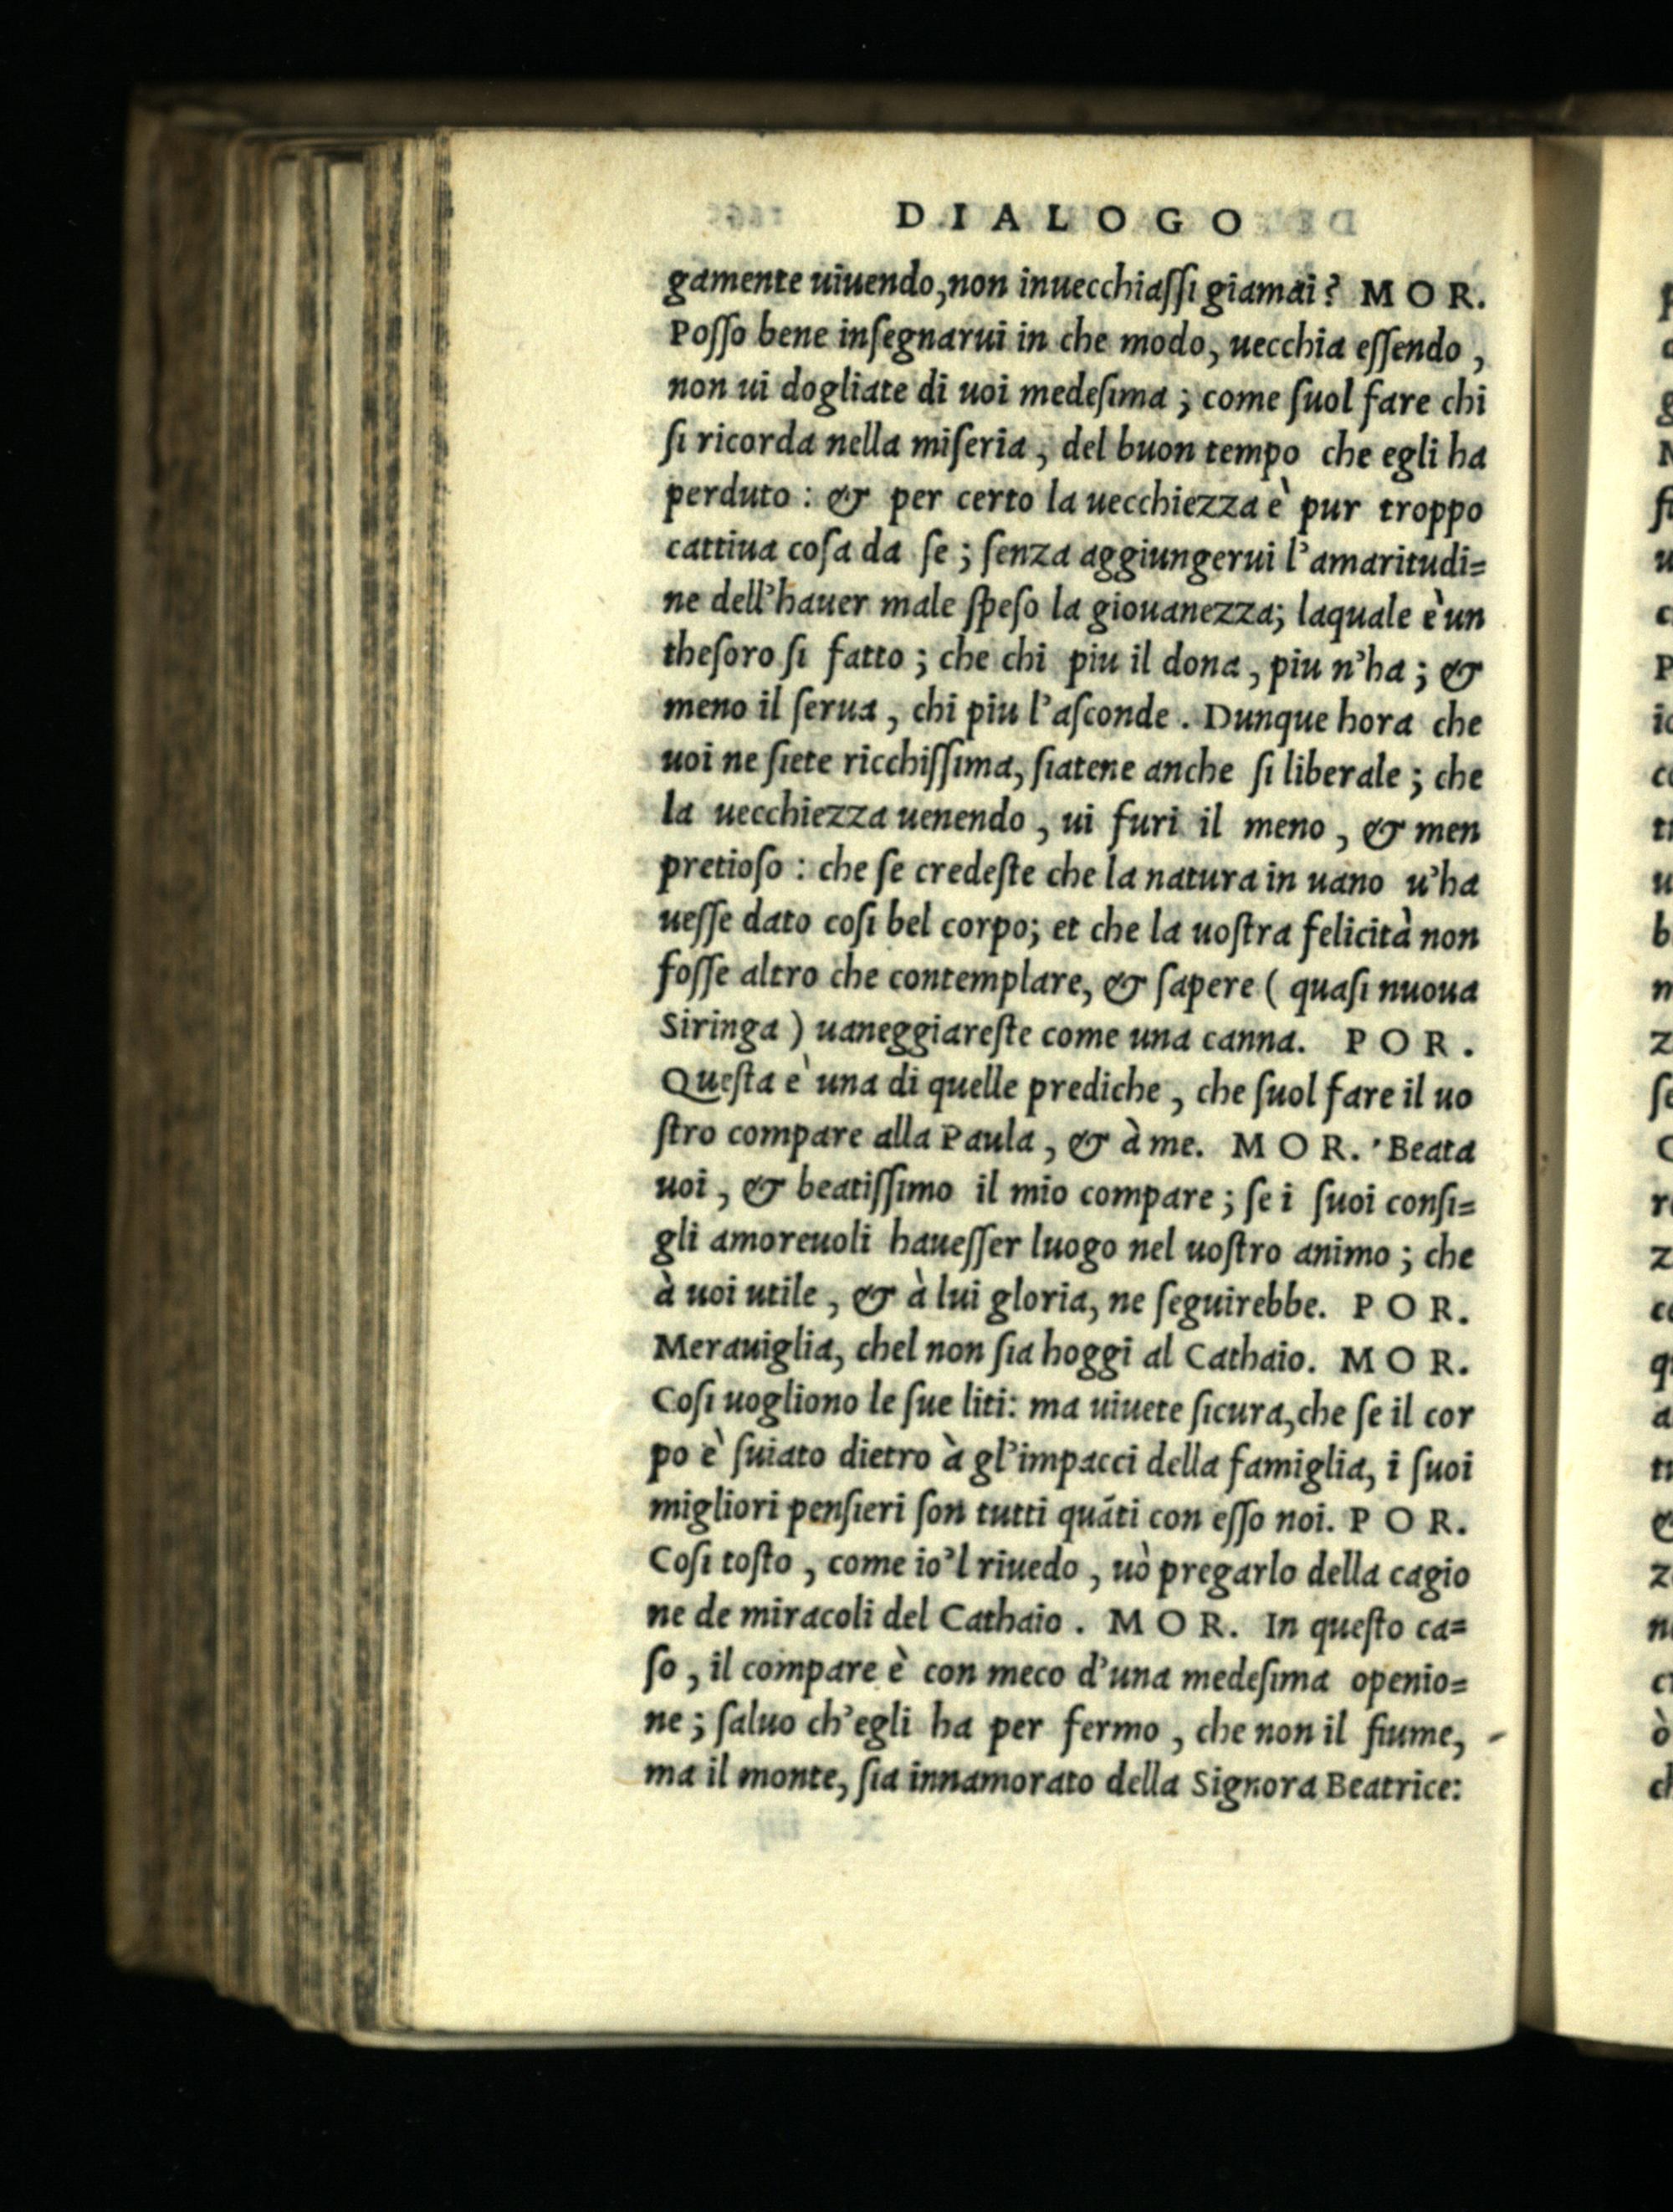 DIALOGO
gamente uiuendo,non inuecchiaſſi giamai? MOR.
Poſſo bene inſegnarui in che modo, uecchia eſſendo ,
non ui dogliate di uoi medeſima ; come ſuol fare chi
ſi ricorda nella miſeria , del buon tempo che egli ha
perduto : & per certo la uecchiezza è pur troppo
cattiua coſa da ſe ; ſenza aggiungerui l'amaritudi=
ne dell'hauer male ſpeſo la giouanezza; laquale è un
theſoro ſi fatto ; che chi piu il dona , piu n'ha ; &
meno il ſerua , chi piu l'aſconde . Dunque hora che
uoi ne ſiete ricchiſſima, ſiatene anche ſi liberale ; che
la uecchiezza uenendo , ui furi il meno , & men
pretioſo : che ſe credeſte che la natura in uano u'ha
ueſſe dato coſi bel corpo; et che la uoſtra felicità non
foſſe altro che contemplare, & ſapere ( quaſi nuoua
Siringa ) uaneggiareſte come una canna. POR.
Queſta è una di quelle prediche , che ſuol fare il uo
ſtro compare alla Paula , & à me. MOR. Beata
uoi , & beatiſſimo il mio compare ; ſe i ſuoi conſi=
gli amoreuoli haueſſer luogo nel uoſtro animo ; che
à uoi utile , & à lui gloria, ne ſeguirebbe. POR.
Merauiglia, chel non ſia hoggi al Cathaio. MOR.
Coſi uogliono le ſue liti: ma uiuete ſicura,che ſe il cor
po è ſuiato dietro à gl'impacci della famiglia, i ſuoi
migliori penſieri ſon tutti quāti con eſſo noi. POR.
Coſi toſto , come io'l riuedo , uò pregarlo della cagio
ne de miracoli del Cathaio . MOR. In queſto ca=
ſo , il compare è con meco d'una medeſima openio=
ne ; ſaluo ch'egli ha per fermo , che non il fiume,
ma il monte, ſia innamorato della Signora Beatrice: